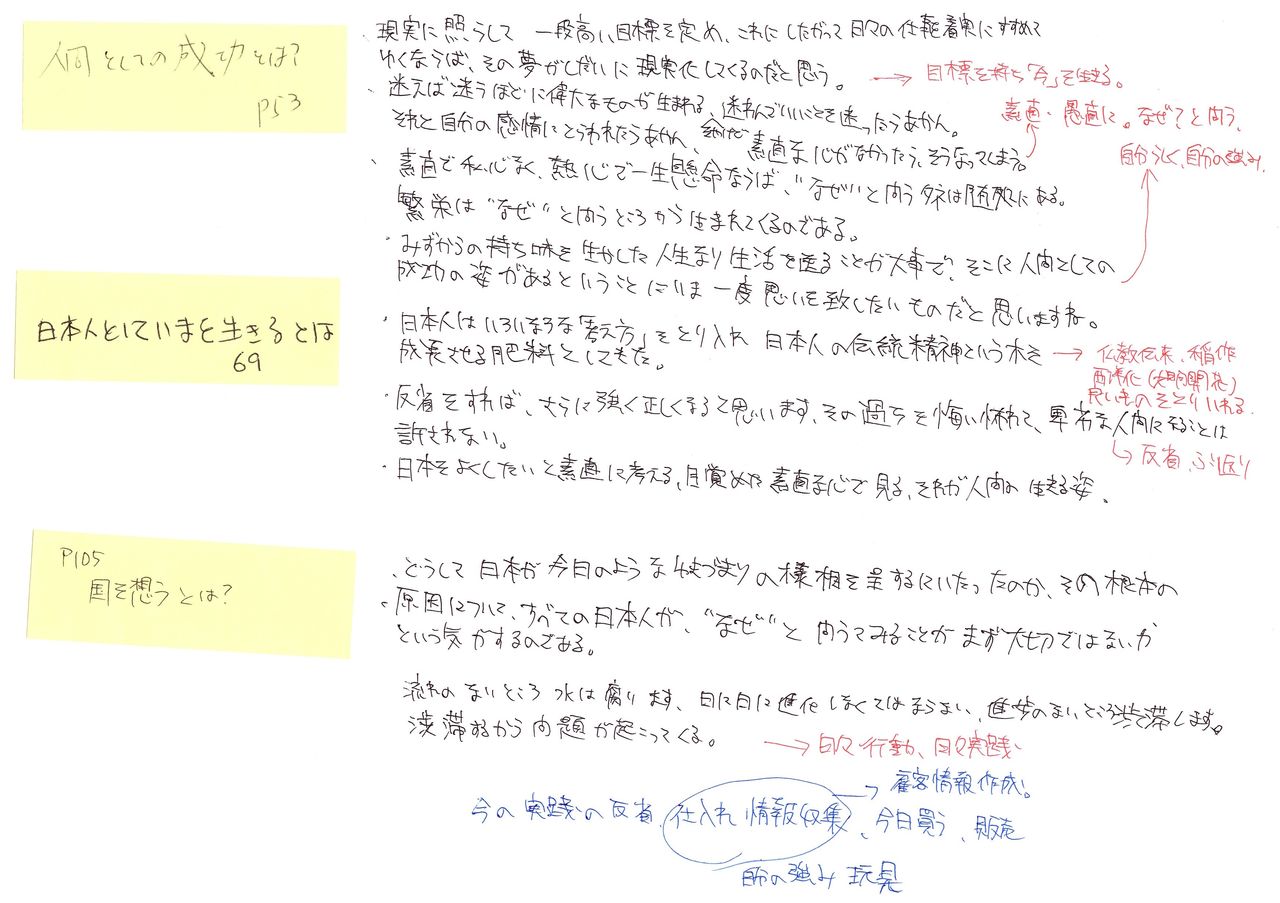 人間としての成功とは?
P53
・現実に照らして 一段高い目標を定め、これにしたがって日々の仕事を着実にすすめて
ゆくならば、その夢がしだいに現実化してくるのだと思う。
→ 目標を持ち「今」を生きる。
・迷えば迷うほどに偉大なものが生まれる、迷わんでいいことを迷ったらあかん。
それと自分の感情にとらわれたらあかん、 素直な心がなかったら、そうなってしまう。
素直・愚直に。なぜ?と問う、
自分らしく、自分の強み、
・素直で私心なく、熱心で一生懸命ならば、"なぜ"と問うタネは随処にある。
繁栄は"なぜ"と問うところから生まれてくるのである。
・みずからの持ち味を生かした人生なり生活を送ることが大事で、そこに人間としての
成功の姿があるということにいま一度思いを致したいものだと思いますね。
日本人としていまを生きるとは
69
・日本人はいろいろな「考え方」をとり入れ 日本人の伝統精神という木を
成長させる肥料としてもた。
→ 仏教伝来、稲作
西洋化(文明開花)
良いものをとりいれる。
・反省をすれば、さらに強く正しくなると思います、その過ちを悔い怖れて、卑劣な人間になることは
許されない。
→ 反省、ふり返り
・日本をよくしたいと素直に考える、目覚めた素直な心で見る、それが人間の生きる姿。
P105
国を想うとは?
・どうして日本が今日のような行きづまりの様相を呈するにいたったのか、その根本の
・原因について、すべての日本人が、"なぜ"と問うてみることがまず大切ではないか
という気がするのである。
流れのないところ水は腐ります、日に日に進化しなくてはならない、進歩のないところ渋滞します。
渋滞するから問題が起こってくる。
→ 日々行動、日々実践
→ 顧客情報作成。
今の実践の反省、仕入れ情報収集、今日買う、販売
自分の強み 玩具